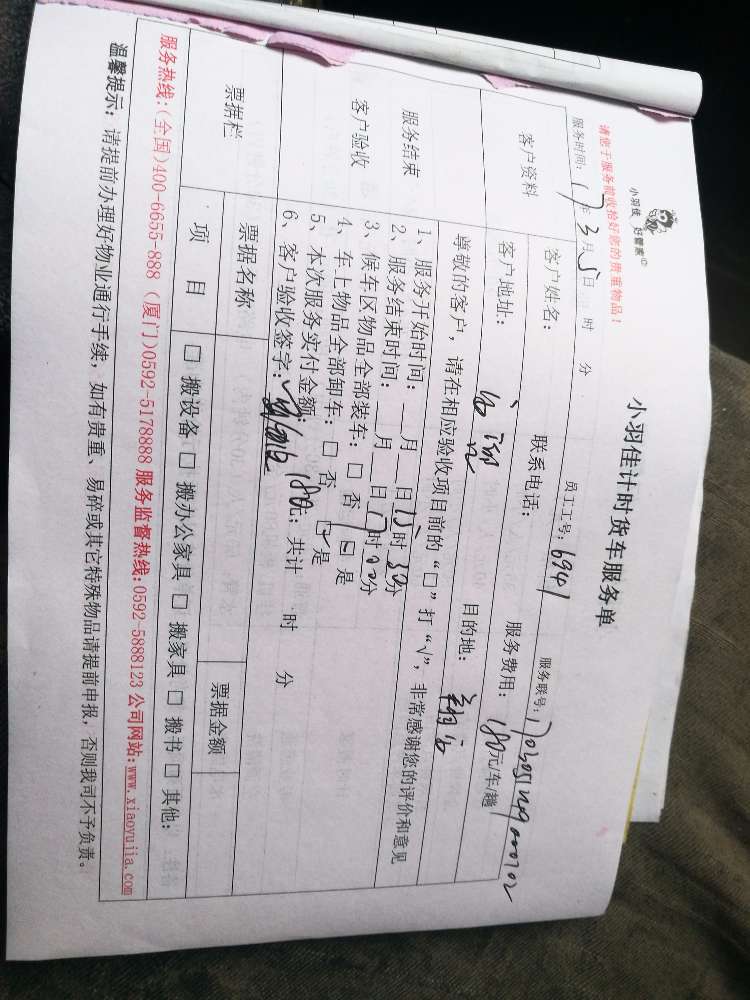 请您于服务前收拾好您的贵重物品！
小羽佳 好管家
小羽佳计时货车服务单
服务时间：17年3月5日 时 分 员工工号：6941 服务联号：1703051249000702
客户资料
客户姓名： 联系电话： 服务费用：180元/车/趟
客户地址： 目的地：翔安
服务结束
客户验收
尊敬的客户，请在相应验收项目前的“□”打“√”，非常感谢您的评价和意见
1、服务开始时间： 月 日15时30分
2、服务结束时间： 月 日17时00分
3、候车区物品全部装车：□ 否 □ 是
4、车上物品全部卸车：□ 否 □ 是
5、本次服务实付金额：180元；共计 时 分
6、客户验收签字：
票据栏
票据名称 票据金额
项 目
□ 搬设备 □ 搬办公家具 □ 搬家具 □ 搬书 □ 其他：
服务热线：（全国）400-6655-888（厦门）0592-5178888 服务监督热线：0592-5888123 公司网站：www.xiaoyujia.com
温馨提示：请提前办理好物业通行手续，如有贵重、易碎或其它特殊物品请提前申报，否则我司不予负责。